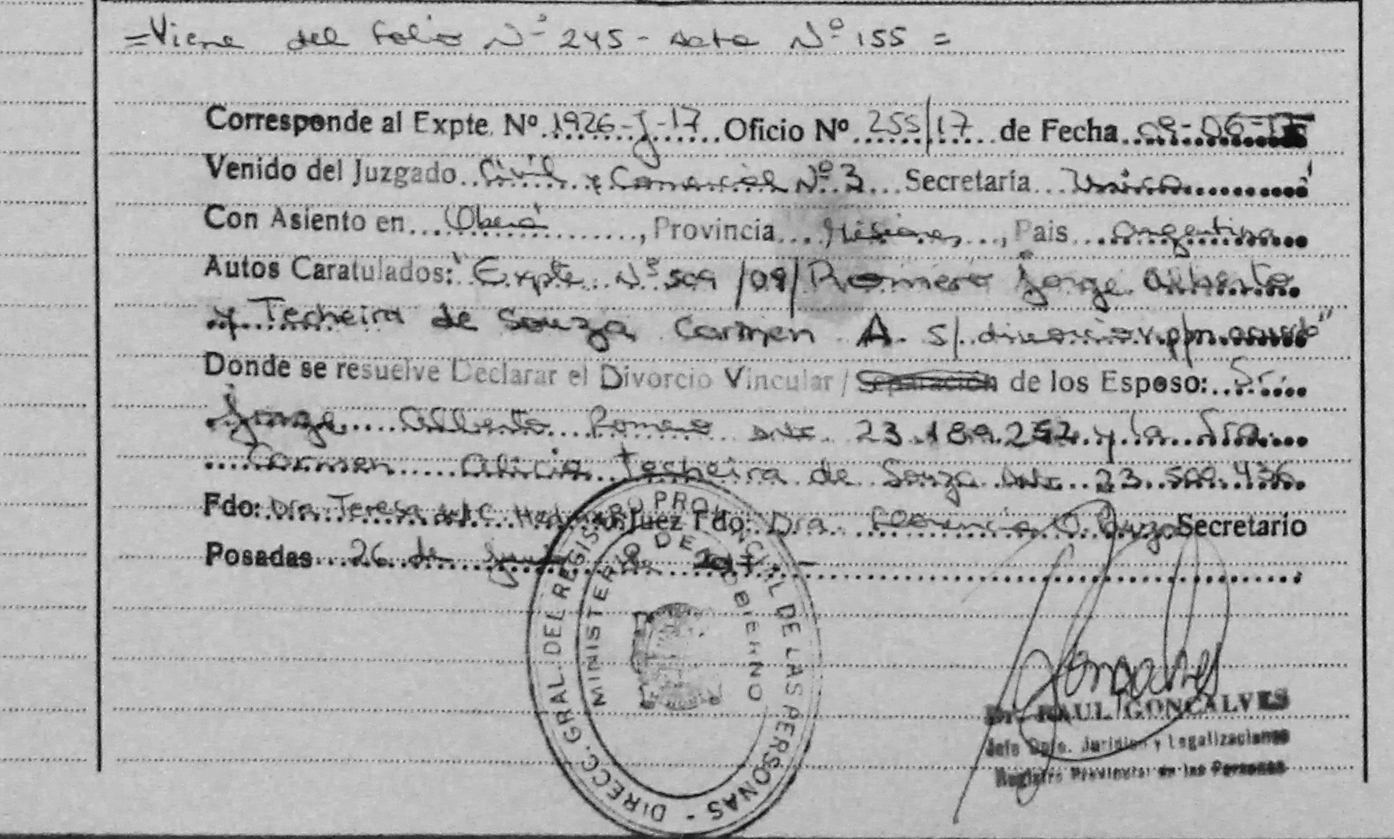 =Viene del folio Nº 245 - Acta Nº 155 =
Corresponde al Expte. Nº 1926-J-17 Oficio Nº 255/17 de Fecha 09-06-17
Venido del Juzgado Civil y Comercial Nº 3 Secretaría Unica
Con Asiento en Oberá, Provincia Misiones, Pais Argentina
Autos Caratulados: "Expte Nº 509/09/ Romero Jorge Alberto
y Techeira de Souza Carmen A. s/ divorcio v. p/m. acuerdo"
Donde se resuelve Declarar el Divorcio Vincular / Separación de los Esposo: Sr.
Jorge Alberto Romero DNI. 23.189.252 y la Sra.
Carmen Alicia Techeira de Souza DNI. 23.509.436
Fdo: Dra. Teresa del C. Juez Fdo: Dra. Florencia Secretario
Posadas 26 de de
DIRECC. GRAL. DEL REGISTRO PROVINCIAL DE LAS PERSONAS -
MINISTERIO DE GOBIERNO
Dr. RAUL GONCALVES
Jefe Dpto. Juridico y Legalizaciones
Registro Provincial de las Personas